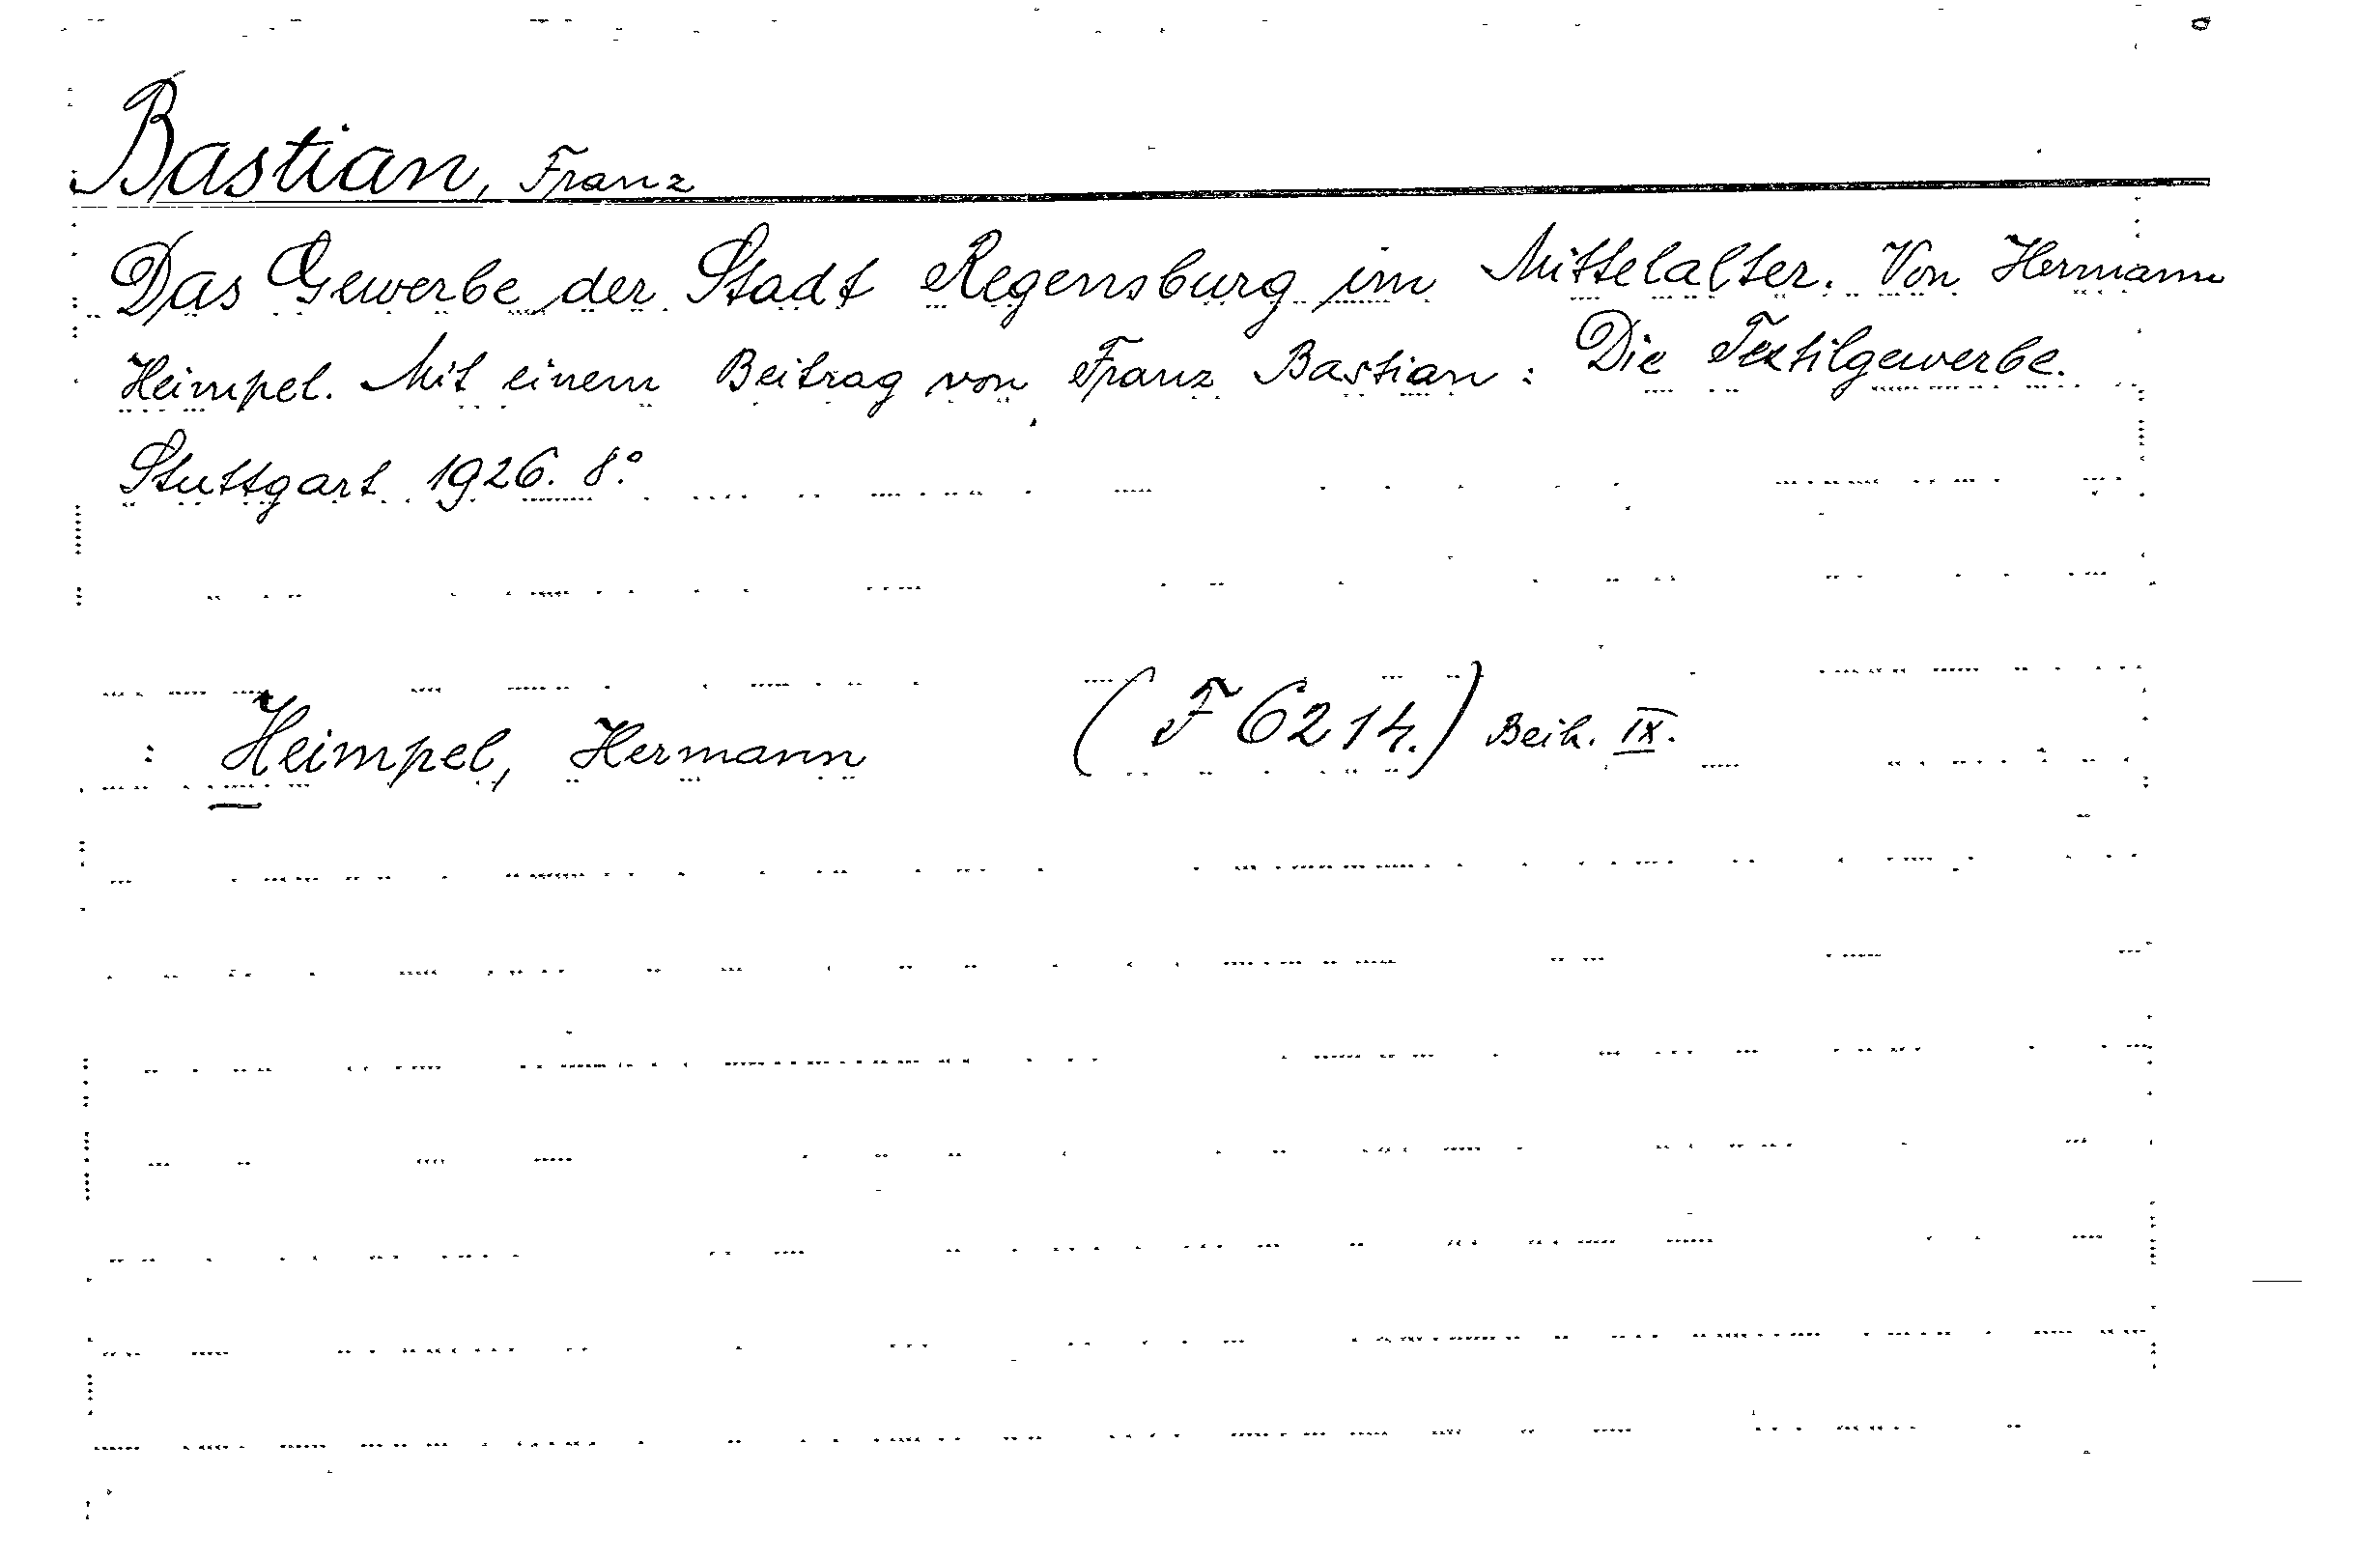 Bastian, Franz
Das Gewerbe der Stadt Regensburg im Mittelalter. Von Hermann
Heimpel. Mit einem Beitrag von Franz Bastian: Die Textilgewerbe.
Stuttgart 1926. 8°
: Heimpel, Hermann (F 6214.) Beih. IX.